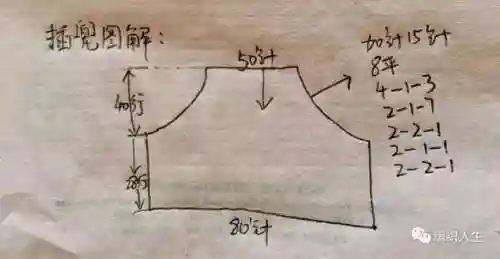 插兜图解:
50针
加针15针
8平
4-1-3
2-1-7
2-2-1
2-1-1
2-2-1
40行
80针
编织人生